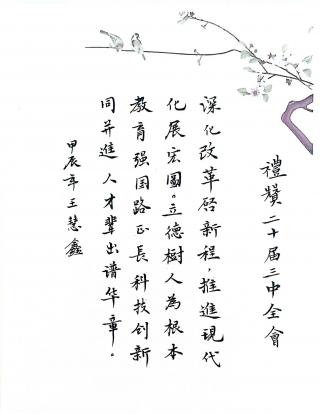 禮贊二十届三中全會
深化改革啓新程，推進現代
化展宏圖。立德樹人為根本
教育强国路正長科技创新
同并進人才輩出谱华章。
甲辰年王慧鑫